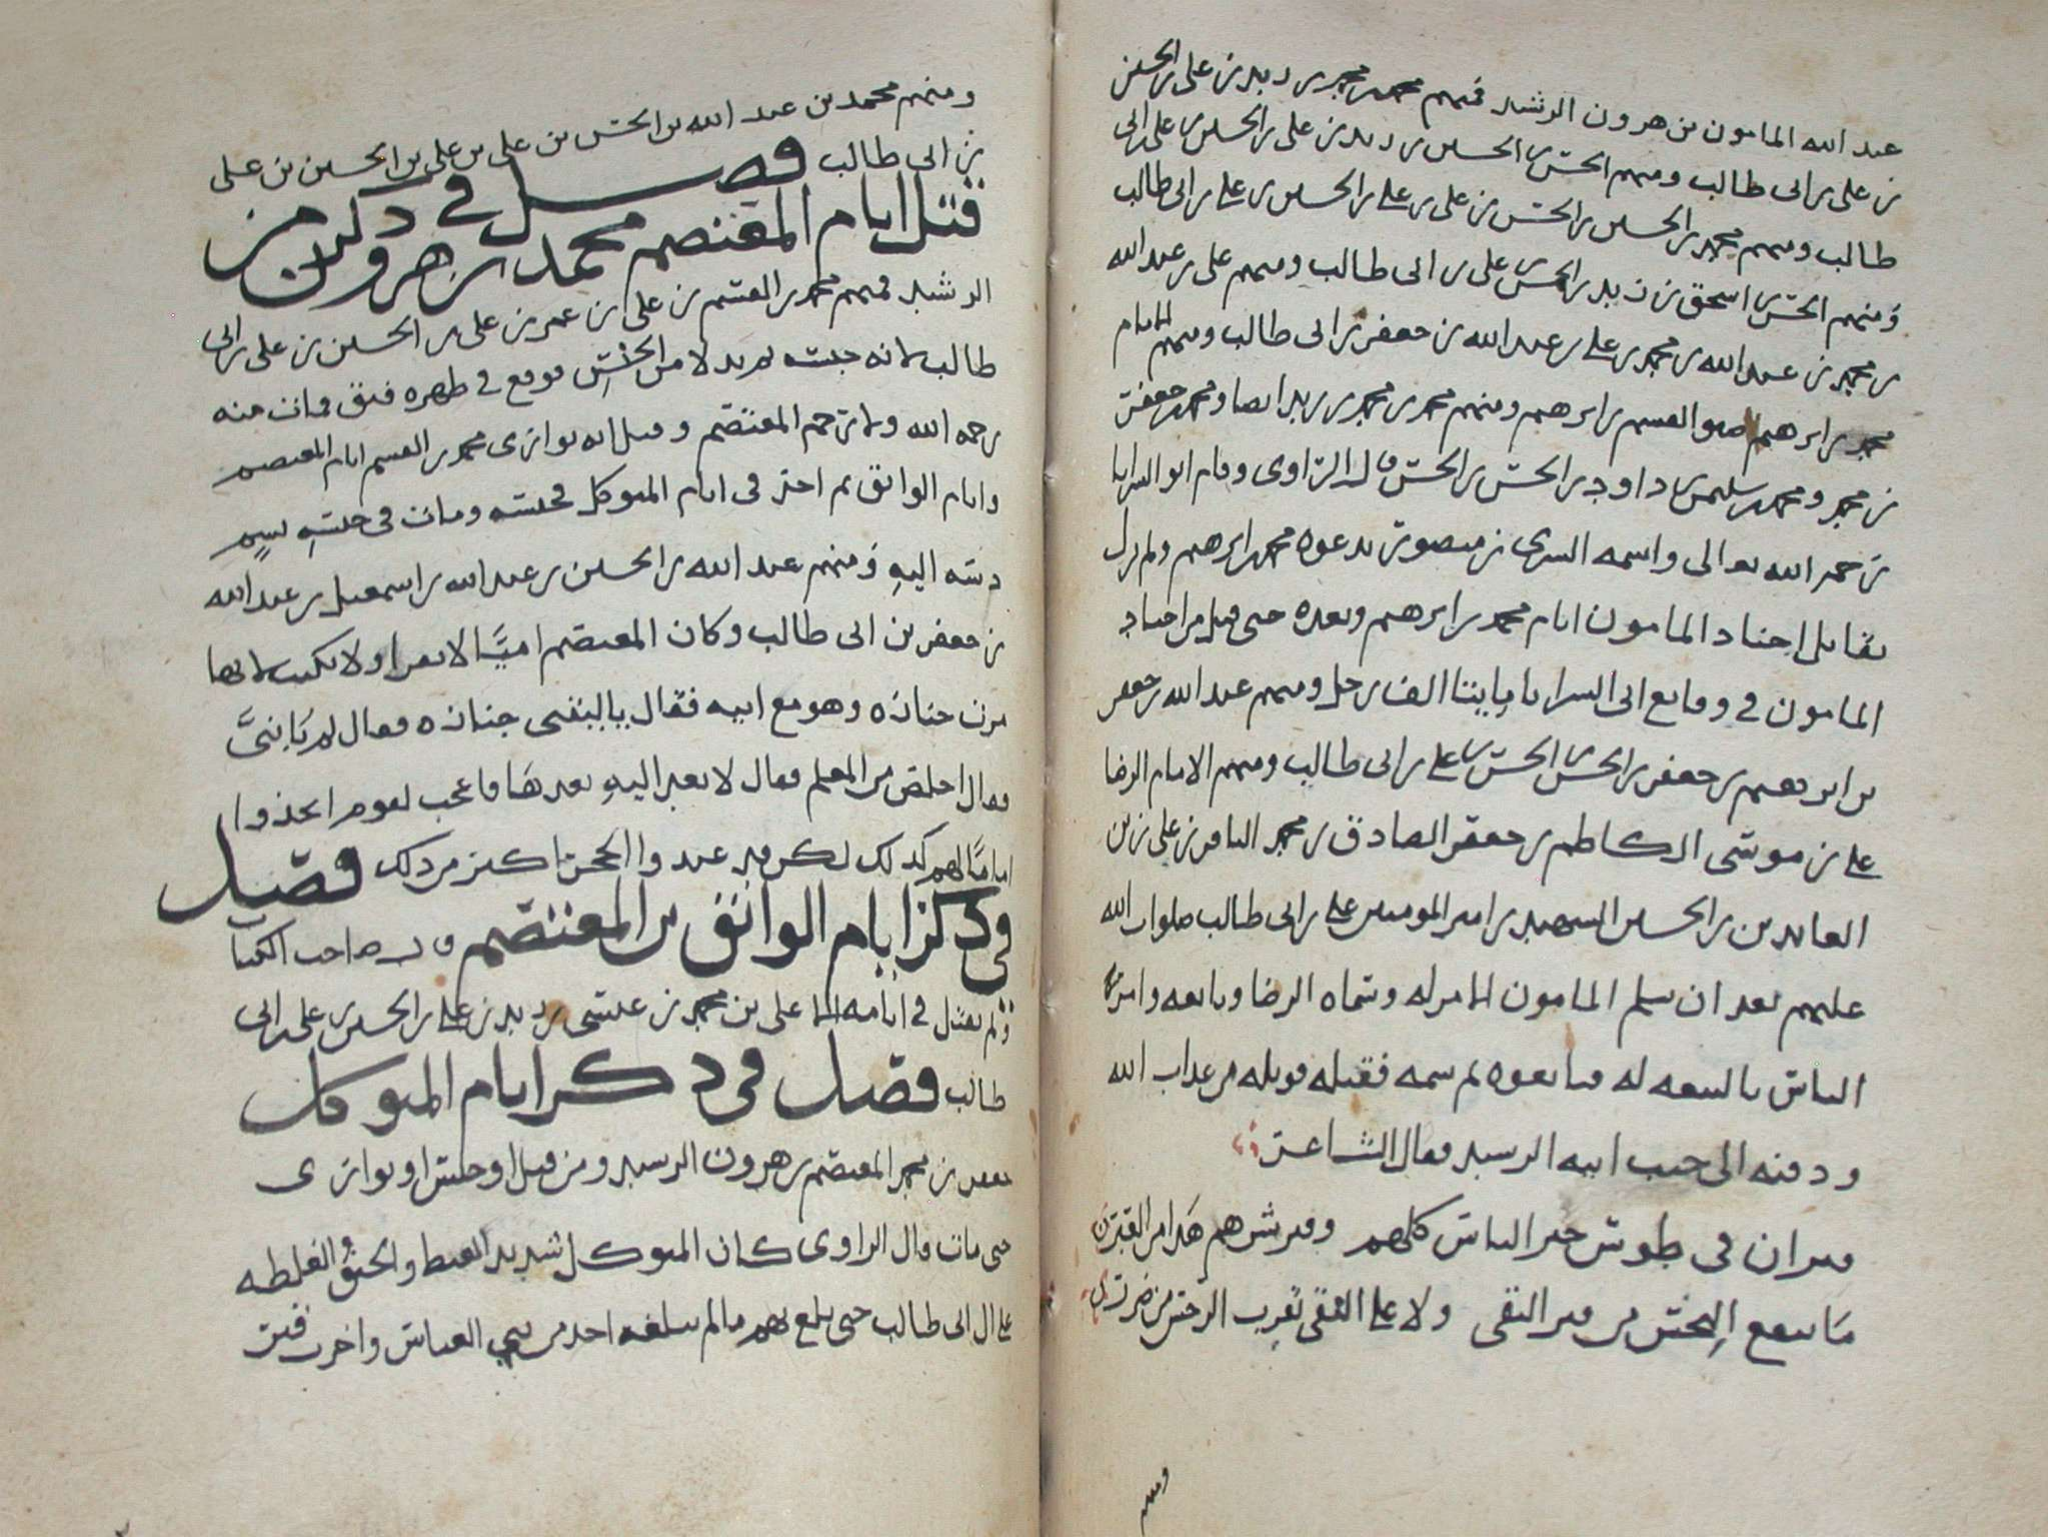 عبد الله المامون بن هرون الرشيد فمنهم محمد بن محمد بن زيد بن على بن الحسين
بن على بن ابى طالب ومنهم الحسن بن الحسين بن زيد بن على بن الحسين بن على بن ابى
طالب ومنهم محمد بن الحسين بن الحسن بن على بن على بن الحسين بن على بن ابى طالب
ومنهم الحسن بن اسحق بن زيد بن الحسن بن على بن ابى طالب ومنهم على بن عبد الله
بن محمد بن عبد الله بن محمد بن على بن عبد الله بن جعفر بن ابى طالب ومنهم الامام
محمد بن ابرهيم صنو القسم بن ابرهيم ومنهم محمد بن محمد بن زيد ايضا ومحمد بن جعفر
بن محمد ومحمد بن سليمن بن داود بن الحسن بن الحسن قال الراوى وقام ابو السرايا
رحمه الله تعالى واسمه السرى بن منصور بدعوه محمد بن ابرهيم ولم يزل
يقاتل اجناد المامون ايام محمد بن ابرهيم وبعده حتى قتل من اجناد
المامون في وقايع ابى السرايا مايتا الف رجل ومنهم عبد الله بن جعفر
بن ابرهيم بن جعفر بن الحسن بن الحسن بن على بن ابى طالب ومنهم الامام الرضا
على بن موسى الكاظم بن جعفر الصادق بن محمد الباقر بن على زين
العابدين بن الحسين الشهيد بن امير المومنين على بن ابى طالب صلوات الله
عليهم بعد ان سلم المامون الامر له وسماه الرضا وبايعه وامر
الناس بالبيعه له فبايعوه ثم سمه فقتله فويله من عذاب الله
ودفنه الى جنب ابيه الرشيد فقال الشاعر
قبران في طوس خير الناس كلهم وقبر شرهم هذا من العبر
ما ينفع الرجس من قبر التقى ولا على التقى بقرب الرجس من ضرر
ومنهم
ومنهم محمد بن عبد الله بن الحسن بن على بن على بن الحسين بن على
بن ابى طالب فصل في ذكر من
قتل ايام المعتصم محمد بن هرون
الرشيد فمنهم محمد بن القسم بن على بن عمر بن على بن الحسين بن على بن ابى
طالب لانه حبسه فوقع في ظهره فتق فمات منه
رحمه الله ولا ترحم المعتصم وقيل انه توارى محمد بن القسم ايام المعتصم
وايام الواثق ثم اخذ في ايام المتوكل فحبسه ومات في حبسه بسم
دسه اليه ومنهم عبد الله بن الحسين بن عبد الله بن اسمعيل بن عبد الله
بن جعفر بن ابى طالب وكان المعتصم اميا لا يقرا ولا يكتب لانها
مرت جنازه وهو مع ابيه فقال يا ليتنى جنازه فقال لم يا بنى
فقال اخلص من المعلم فقال لا تعبر اليه بعدها فاعجب لقوم اتخذوا
اماما لهم كذلك لكن قد عبدوا الحجر اكبر من ذلك فصل
في ذكر ايام الواثق بن المعتصم قال صاحب الكتاب
ولم يقتل في ايامه الا على بن محمد بن عيسى بن زيد بن على بن الحسين بن على بن ابى
طالب فصل في ذكر ايام المتوكل
جعفر بن محمد المعتصم بن هرون الرشيد ومن قتل او حبس او توارى
حتى مات قال الراوى كان المتوكل شديد الغيظ والحنق والغلظه
على ال ابى طالب حتى بلغ بهم مالم يبلغه احد من بنى العباس واخرب قبر